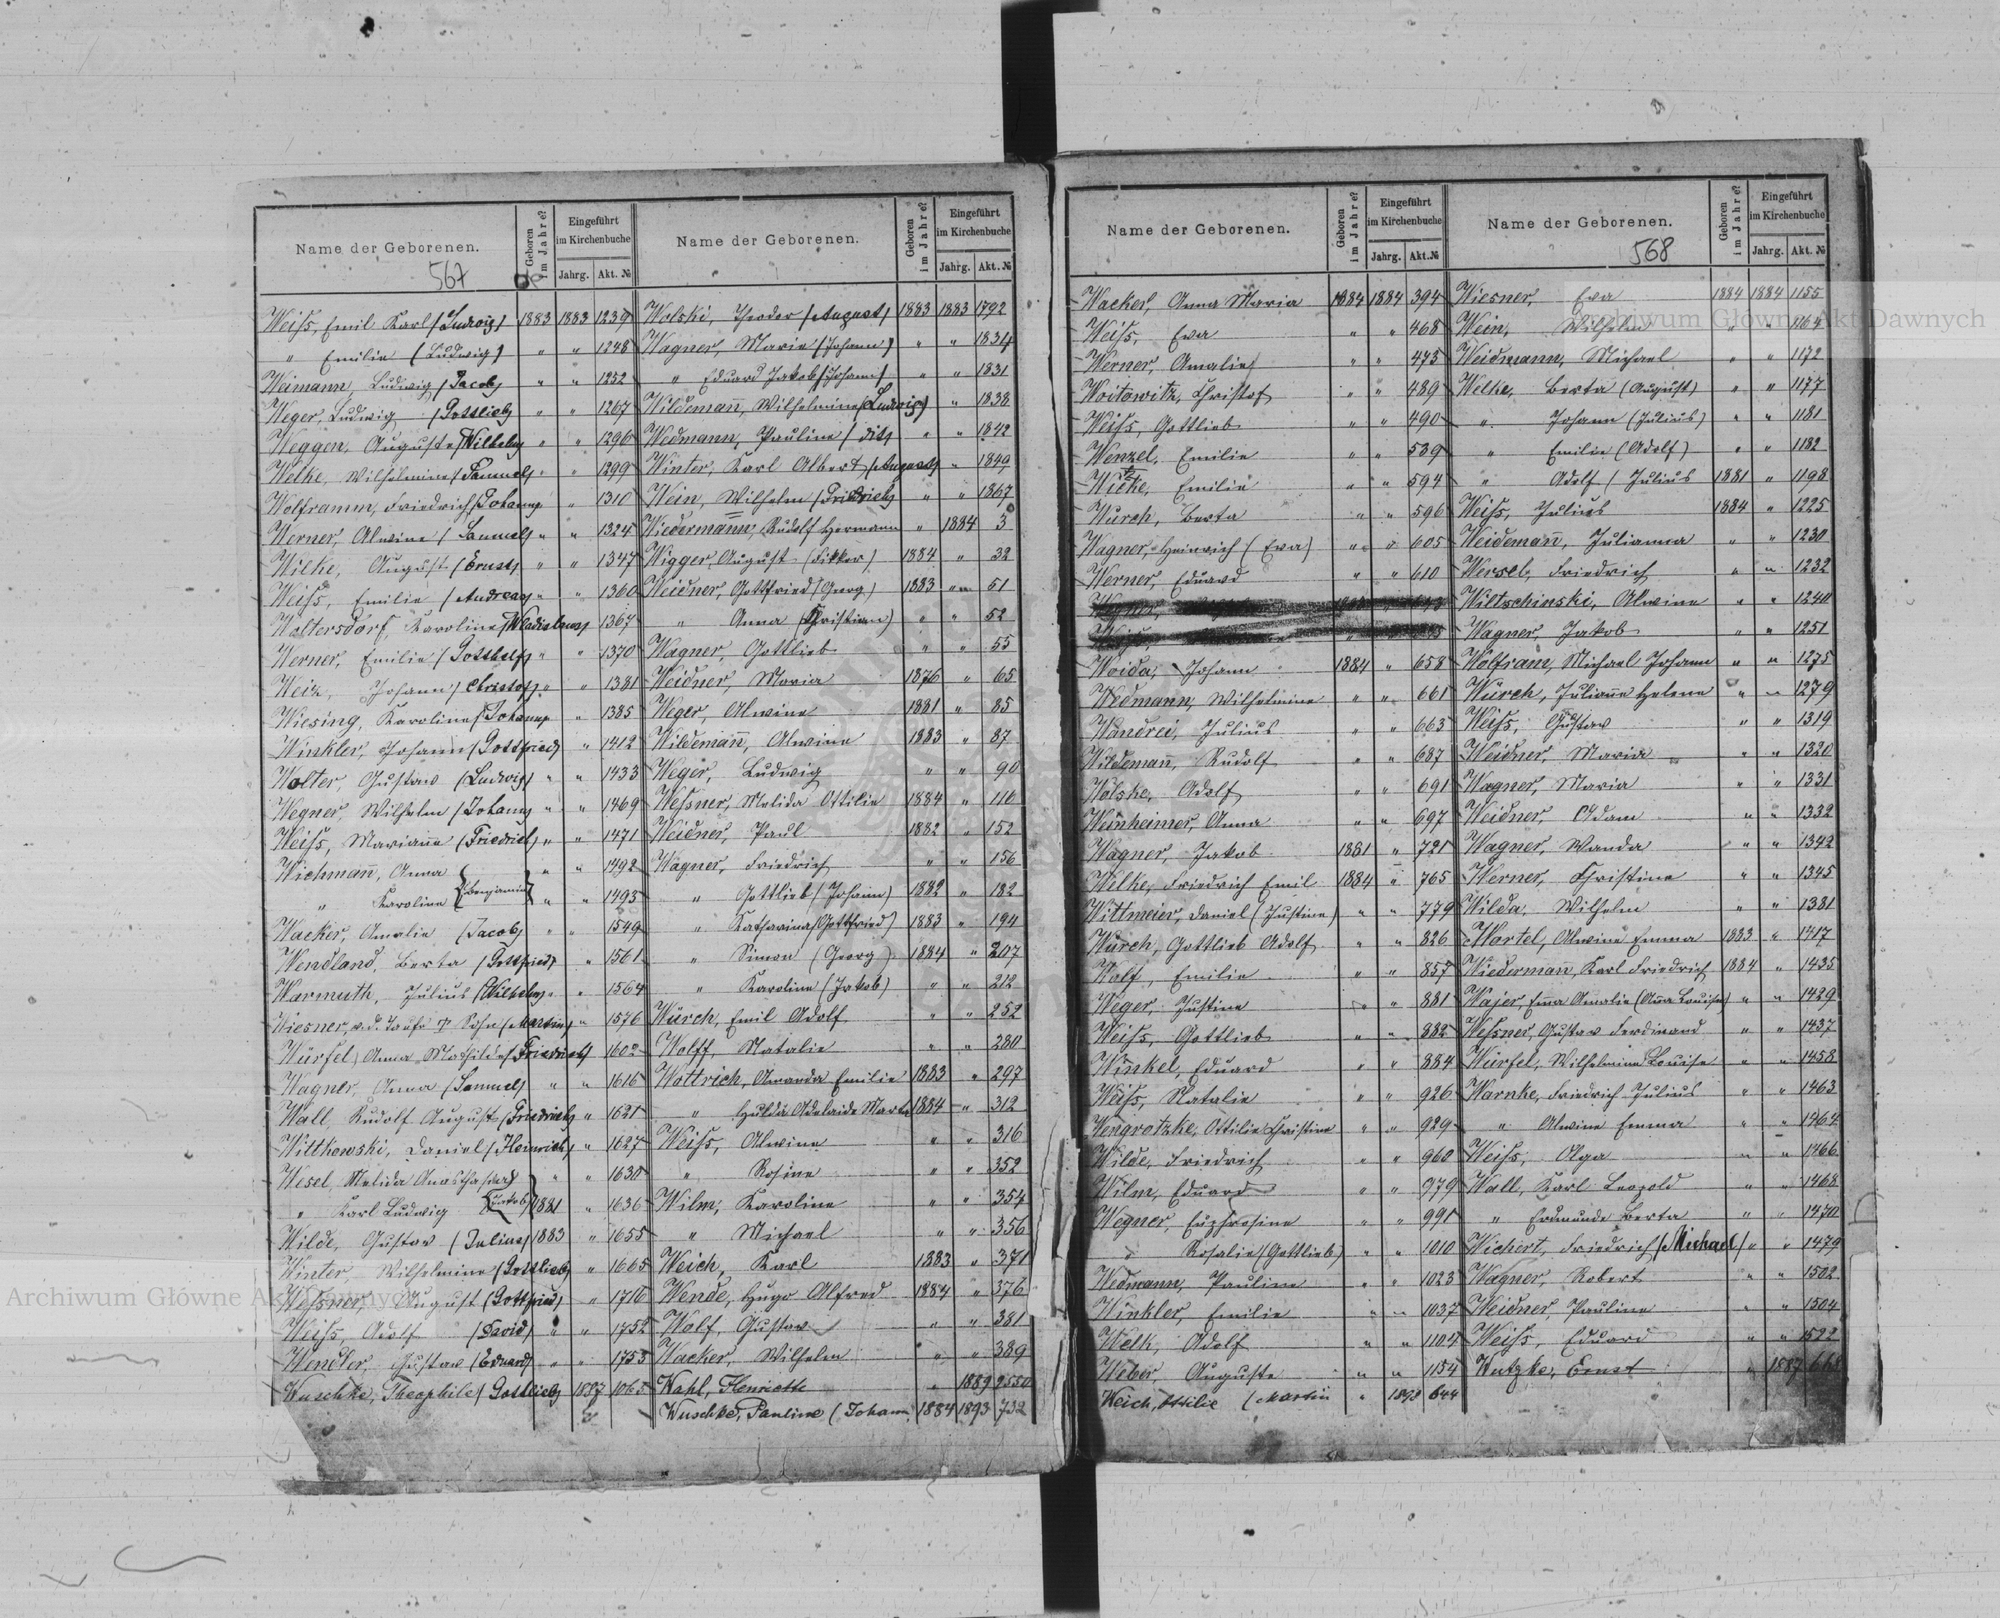 Name der Geborenen.
Geboren im Jahre?
Eingeführt im Kirchenbuche
Jahrg. Akt. №
567
Weiss, Emil Karl (Ludwig) 1883 1883 1239
" Emilie (Ludwig) " " 1248
Weimann, Ludwig (Jacob) " " 1252
Weger, Ludwig (Gottlieb) " " 1267
Weggen, Auguste (Wilhelm) " " 1296
Welke, Wilhelmine (Samuel) " " 1299
Wolframm, Friedrich (Johann) " 1310
Werner, Alwine (Samuel) " " 1324
Wilke, August (Ernst) " " 1347
Weiss, Emilie (Andreas) " " 1360
Waltersdorf, Karoline (Wladislaus) " 1367
Werner, Emilie (Gotthilf) " " 1370
Weiz, Johann (Christof) " " 1381
Wiesing, Karoline (Johann) " 1385
Winkler, Johann (Gottfried) " 1412
Wolter, Gustav (Ludwig) " " 1433
Wegner, Wilhelm (Johann) " " 1469
Weiss, Marianne (Friedrich) " " 1471
Wichmann, Anna " " 1492
" Karoline (Benjamin) " " 1493
Wacker, Amalie (Jacob) " " 1549
Wendland, Berta (Gottfried) " 1561
Warmuth, Julius (Wilhelm) " " 1564
Wiesner, v. d. Taufe † Sohn (Martin) " 1576
Würfel, Anna Mathilde (Friedrich) 1602
Wagner, Anna (Samuel) " " 1616
Wall, Rudolf August (Friedrich) " 1621
Wittkowski, Daniel (Heinrich) " 1627
Wesel, Melida " " 1630
" Karl Ludwig (Jakob) 1881 " 1636
Wilde, Gustav (Julius) 1883 " 1655
Winter, Wilhelmine (Gottlieb) " 1665
Wessner, August (Gottfried) " 1716
Weiss, Adolf (David) " " 1752
Wendler, Gustav (Eduard) " " 1753
Wuschke, Theophile (Gottlieb) 1887 1065
Name der Geborenen.
Geboren im Jahre?
Eingeführt im Kirchenbuche
Jahrg. Akt. №
Wolski, Theodor (August) 1883 1883 1792
Wagner, Marie (Johann) " " 1834
" Eduard Jakob (Johann) " " 1831
Wildemann, Wilhelmine (Ludwig) " 1838
Wedmann, Pauline " " 1842
Winter, Karl Albert (August) " 1849
Wein, Wilhelm (Friedrich) " " 1867
Wiedermann, Rudolf Hermann " 1884 3
Wigger, August 1884 " 32
Weidner, Gottfried (Georg) 1883 " 51
" Anna (Christian) " " 52
Wagner, Gottlieb " " 55
Weidner, Maria 1876 " 65
Weger, Alwine 1881 " 85
Wildemann, Alwine 1883 " 87
Weger, Ludwig " " 90
Wessner, Melida Ottilie 1884 " 116
Weidner, Paul 1882 " 152
Wagner, Friedrich " " 156
" Gottlieb (Johann) 1882 " 182
" Katharina (Gottfried) 1883 " 194
" Simon (Georg) 1884 " 207
" Karoline (Jakob) " " 212
Würch, Emil Adolf " " 252
Wolff, Natalie " " 280
Wottrich, Amanda Emilie 1883 " 297
" Hulda Adelaide Marta 1884 " 312
Weiss, Alwine " " 316
" Rosine " " 352
Wilm, Karoline " " 354
" Michael " " 356
Weich, Karl 1883 " 371
Wende, Hugo Alfred 1884 " 376
Wolf, Gustav " " 381
Wacker, Wilhelm " " 389
Wahl, Henriette " 1889 2550
Wuschke, Pauline (Johann 1884 1893 732
Name der Geborenen.
Geboren im Jahre?
Eingeführt im Kirchenbuche
Jahrg. Akt. №
Wacker, Anna Maria 1884 1884 394
Weiss, Eva " " 468
Werner, Amalie " " 473
Woitowitz, Christof " " 489
Weiss, Gottlieb " " 490
Wenzel, Emilie " " 539
Wicke, Emilie " " 594
Würch, Berta " " 596
Wagner, Heinrich (Eva) " " 605
Werner, Eduard " " 610
Woida, Johann 1884 " 658
Wedmann, Wilhelmine " " 661
Wandrei, Julius " " 663
Wildemann, Rudolf " " 687
Wolske, Adolf " " 691
Weinheimer, Anna " " 697
Wagner, Jakob 1881 " 721
Wilke, Friedrich Emil 1884 " 765
Wittmeier, Daniel (Justine) " " 779
Würch, Gottlieb Adolf " " 826
Wolf, Emilie " " 857
Weger, Justine " " 881
Weiss, Gottlieb " " 882
Winkel, Eduard " " 884
Weiss, Natalie " " 926
Wengrotzke, Ottilie Christine " " 929
Wilde, Friedrich " " 960
Wilm, Eduard " " 979
Wegner, Euphrosine " " 991
" Rosalie (Gottlieb) " " 1010
Wedmann, Pauline " " 1023
Winkler, Emilie " " 1037
Welk, Adolf " " 1104
Weber, Auguste " " 1154
Weich, Ottilie (Martin " 1892 644
Name der Geborenen.
Geboren im Jahre?
Eingeführt im Kirchenbuche
Jahrg. Akt. №
568
Wiesner, Eva 1884 1884 1155
Wein, Wilhelm " " 1164
Weidmann, Michael " " 1172
Welke, Berta (August) " " 1177
" Johann (Julius) " " 1181
" Emilie (Adolf) " " 1182
" Adolf (Julius 1881 " 1198
Weiss, Julius 1884 " 1225
Weidemann, Julianna " " 1230
Wersel, Friedrich " " 1232
Wiltschinski, Alwine " " 1240
Wagner, Jakob " " 1251
Wolfram, Michael Johann " " 1275
Würch, Julianne Helene " " 1279
Weiss, Gustav " " 1319
Weidner, Maria " " 1320
Wagner, Maria " " 1331
Weidner, Adam " " 1332
Wagner, Wanda " " 1342
Werner, Christine " " 1345
Wilda, Wilhelm " " 1381
Martel, Alwine Emma 1883 " 1417
Wiedermann, Karl Friedrich 1884 " 1435
Wajer, Emma Amalie (Anna Louise) " " 1429
Wessner, Gustav Ferdinand " " 1437
Würfel, Wilhelmine Louise " " 1458
Warnke, Friedrich Julius " " 1463
" Alwine Emma " " 1464
Weiss, Olga " " 1466
Wall, Karl Leopold " " 1468
" Erdmunde Berta " " 1470
Wichert, Friedrich (Michael) " " 1479
Wagner, Robert " " 1502
Weidner, Pauline " " 1504
Weiss, Eduard " " 1522
Wutzke, Ernst " 1887 668
Archiwum Główne Akt Dawnych
Archiwum Główne Akt Dawnych